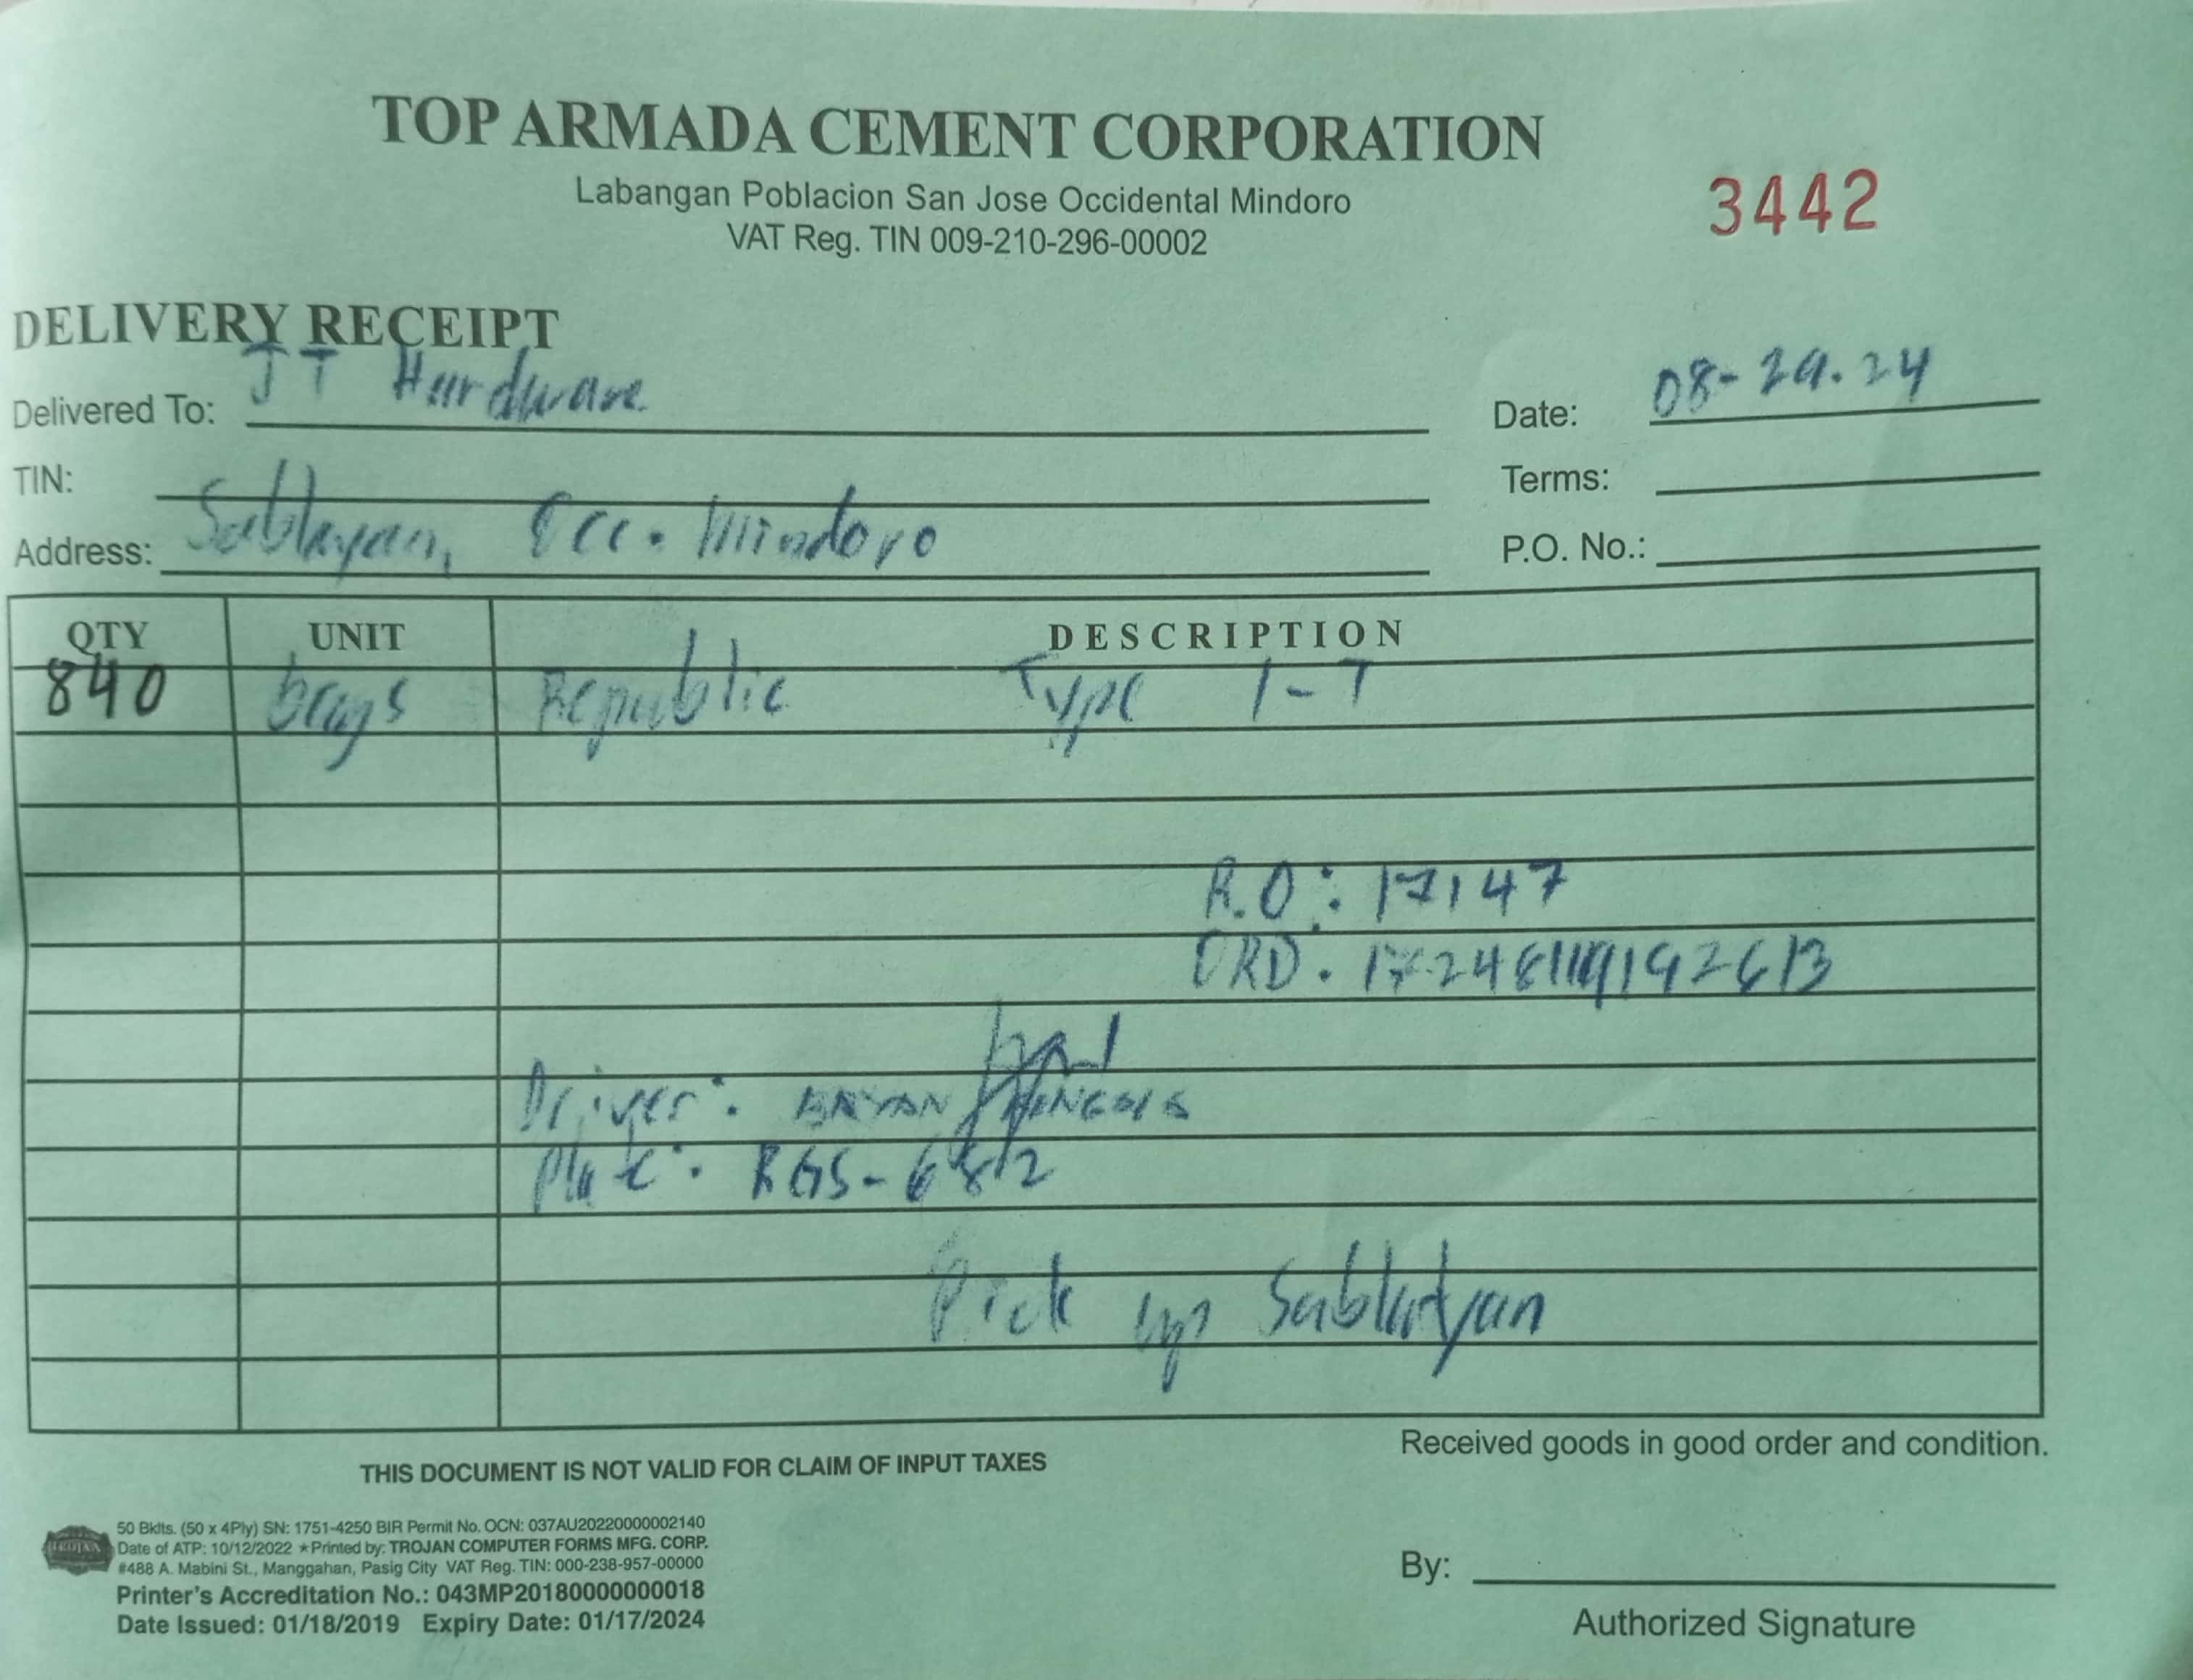 TOP ARMADA CEMENT CORPORATION
Labangan Poblacion San Jose Occidental Mindoro
VAT Reg. TIN 009-210-296-00002
3442
DELIVERY RECEIPT
Delivered To: JT Hardware
Date: 08-29.24
TIN:
Terms:
Address: Sablayan, Occ. Mindoro
P.O. No.:
QTY UNIT DESCRIPTION
840 bags Republic Type 1-T
R.O: 17147
ORD.
Driver: BRYAN
Plate: RGS-6812
Pick up Sablayan
THIS DOCUMENT IS NOT VALID FOR CLAIM OF INPUT TAXES
Received goods in good order and condition.
TROJAN
50 Bklts. (50 x 4Ply) SN: 1751-4250 BIR Permit No. OCN: 037AU20220000002140
Date of ATP: 10/12/2022 ★Printed by: TROJAN COMPUTER FORMS MFG. CORP.
#488 A. Mabini St., Manggahan, Pasig City VAT Reg. TIN: 000-238-957-00000
Printer's Accreditation No.: 043MP20180000000018
Date Issued: 01/18/2019 Expiry Date: 01/17/2024
By:
Authorized Signature